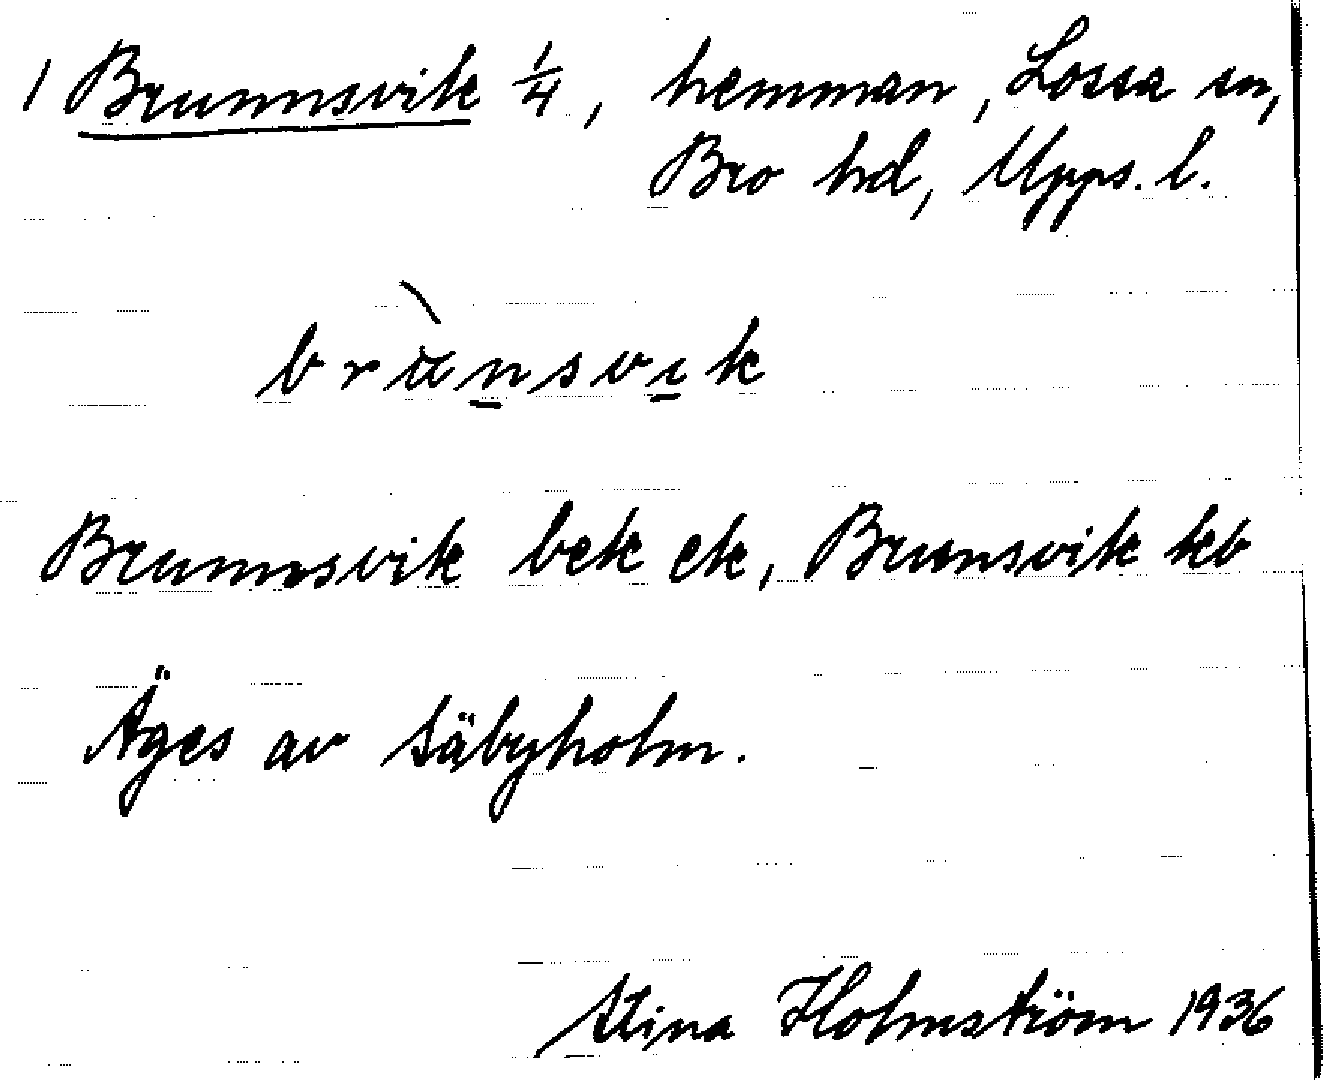 1 Brunnsvik 1/4, hemman, Lossa sn,
Bro hd, Upps. l.
brùnsvik
Brunnsvik bek ek, Brunsvik kb
Äges av Säbyholm.
Stina Holmström 1936